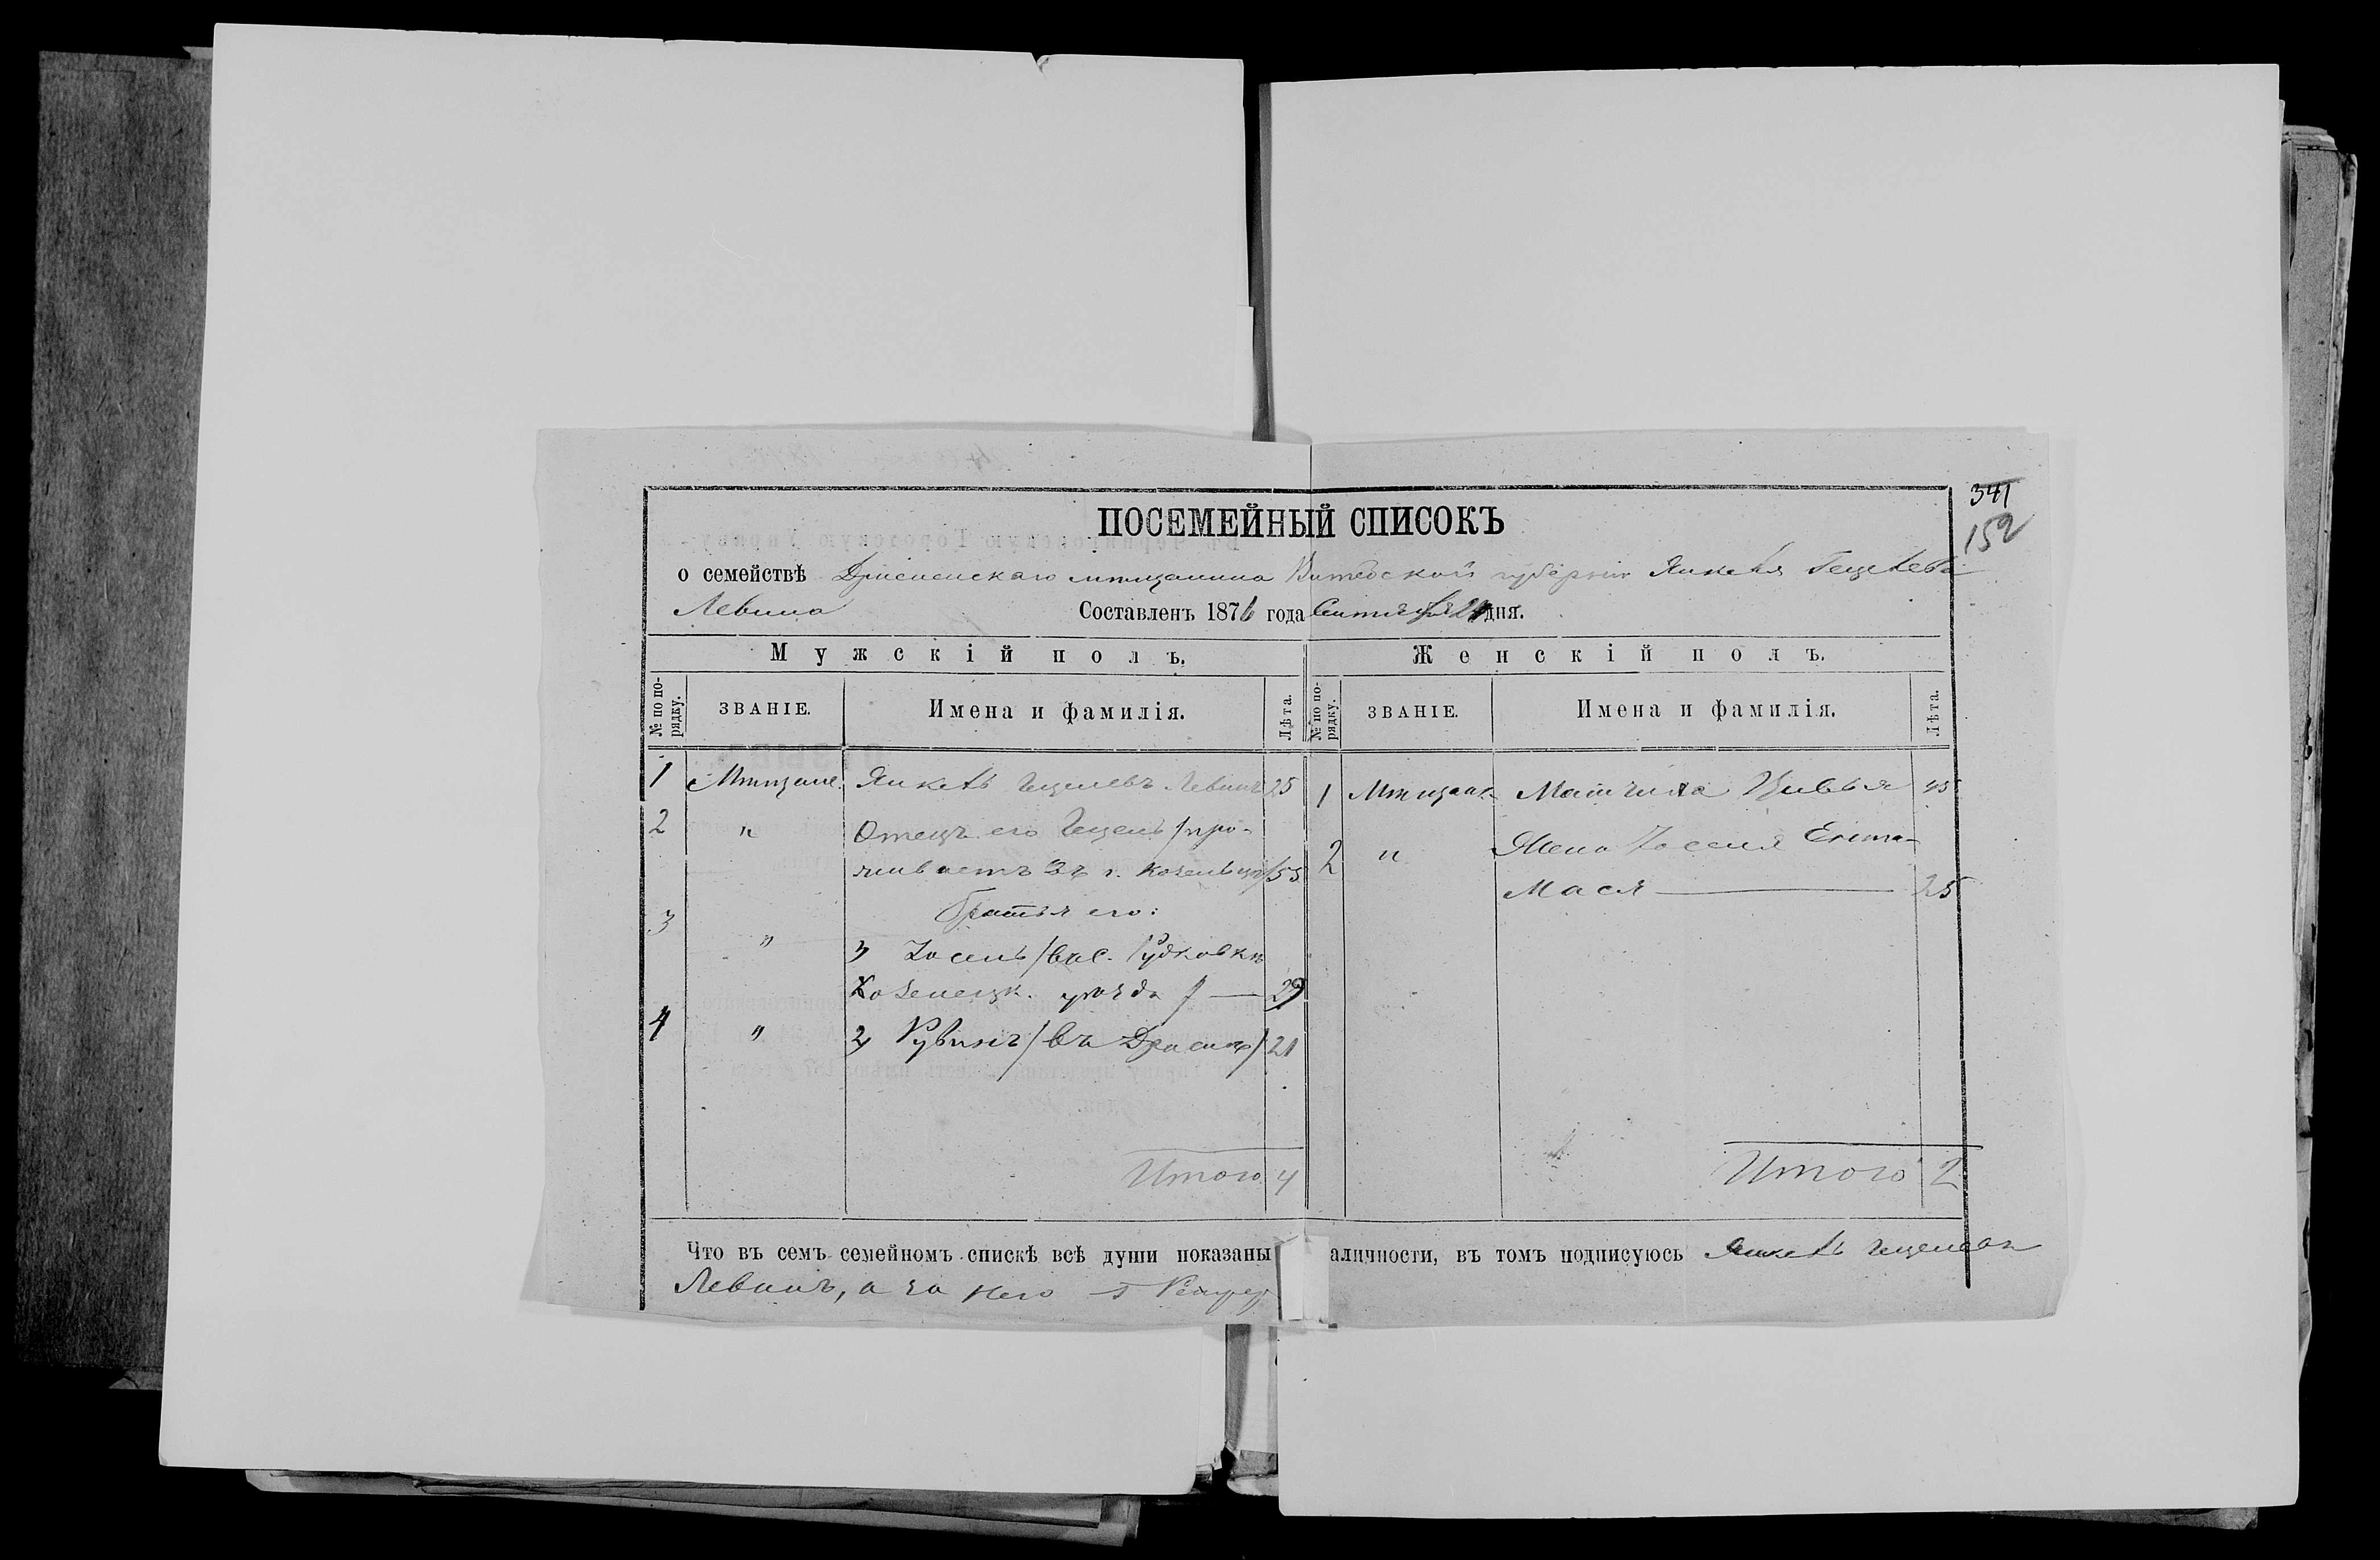 341
152
ПОСЕМЕЙНЫЙ СПИСОКЪ
о семействѣ Дрисенскаго мѣщанина Витебской губерніи Янкеля Гецелева
Левина Составленъ 1876 года Сентября 24 дня.
Мужскій полъ. Женскій полъ.
№ по по-рядку. ЗВАНІЕ. Имена и фамилія. Лѣта. № по по-рядку. ЗВАНІЕ. Имена и фамилія. Лѣта.
1 Мѣщане. Янкель Гецелевъ Левинъ 25
2 " Отецъ его Гецель /про-
живаетъ въ г. Козельцѣ/ 55
Братья его:
3 " 1) Іосель /въ с. Рудковкѣ
Козелецк. уѣзда/ — 29
4 " 2) Рувинъ /въ Дриснѣ/ 21
Итого 4
1 Мѣщанк. Мачиха Цивья 45
2 " Жена Іоселя
Мася — 25
Итого 2
Что въ семъ семейномъ спискѣ всѣ души показаны аличности, въ томъ подписуюсь Янкель Гецелевъ
Левинъ, а за него